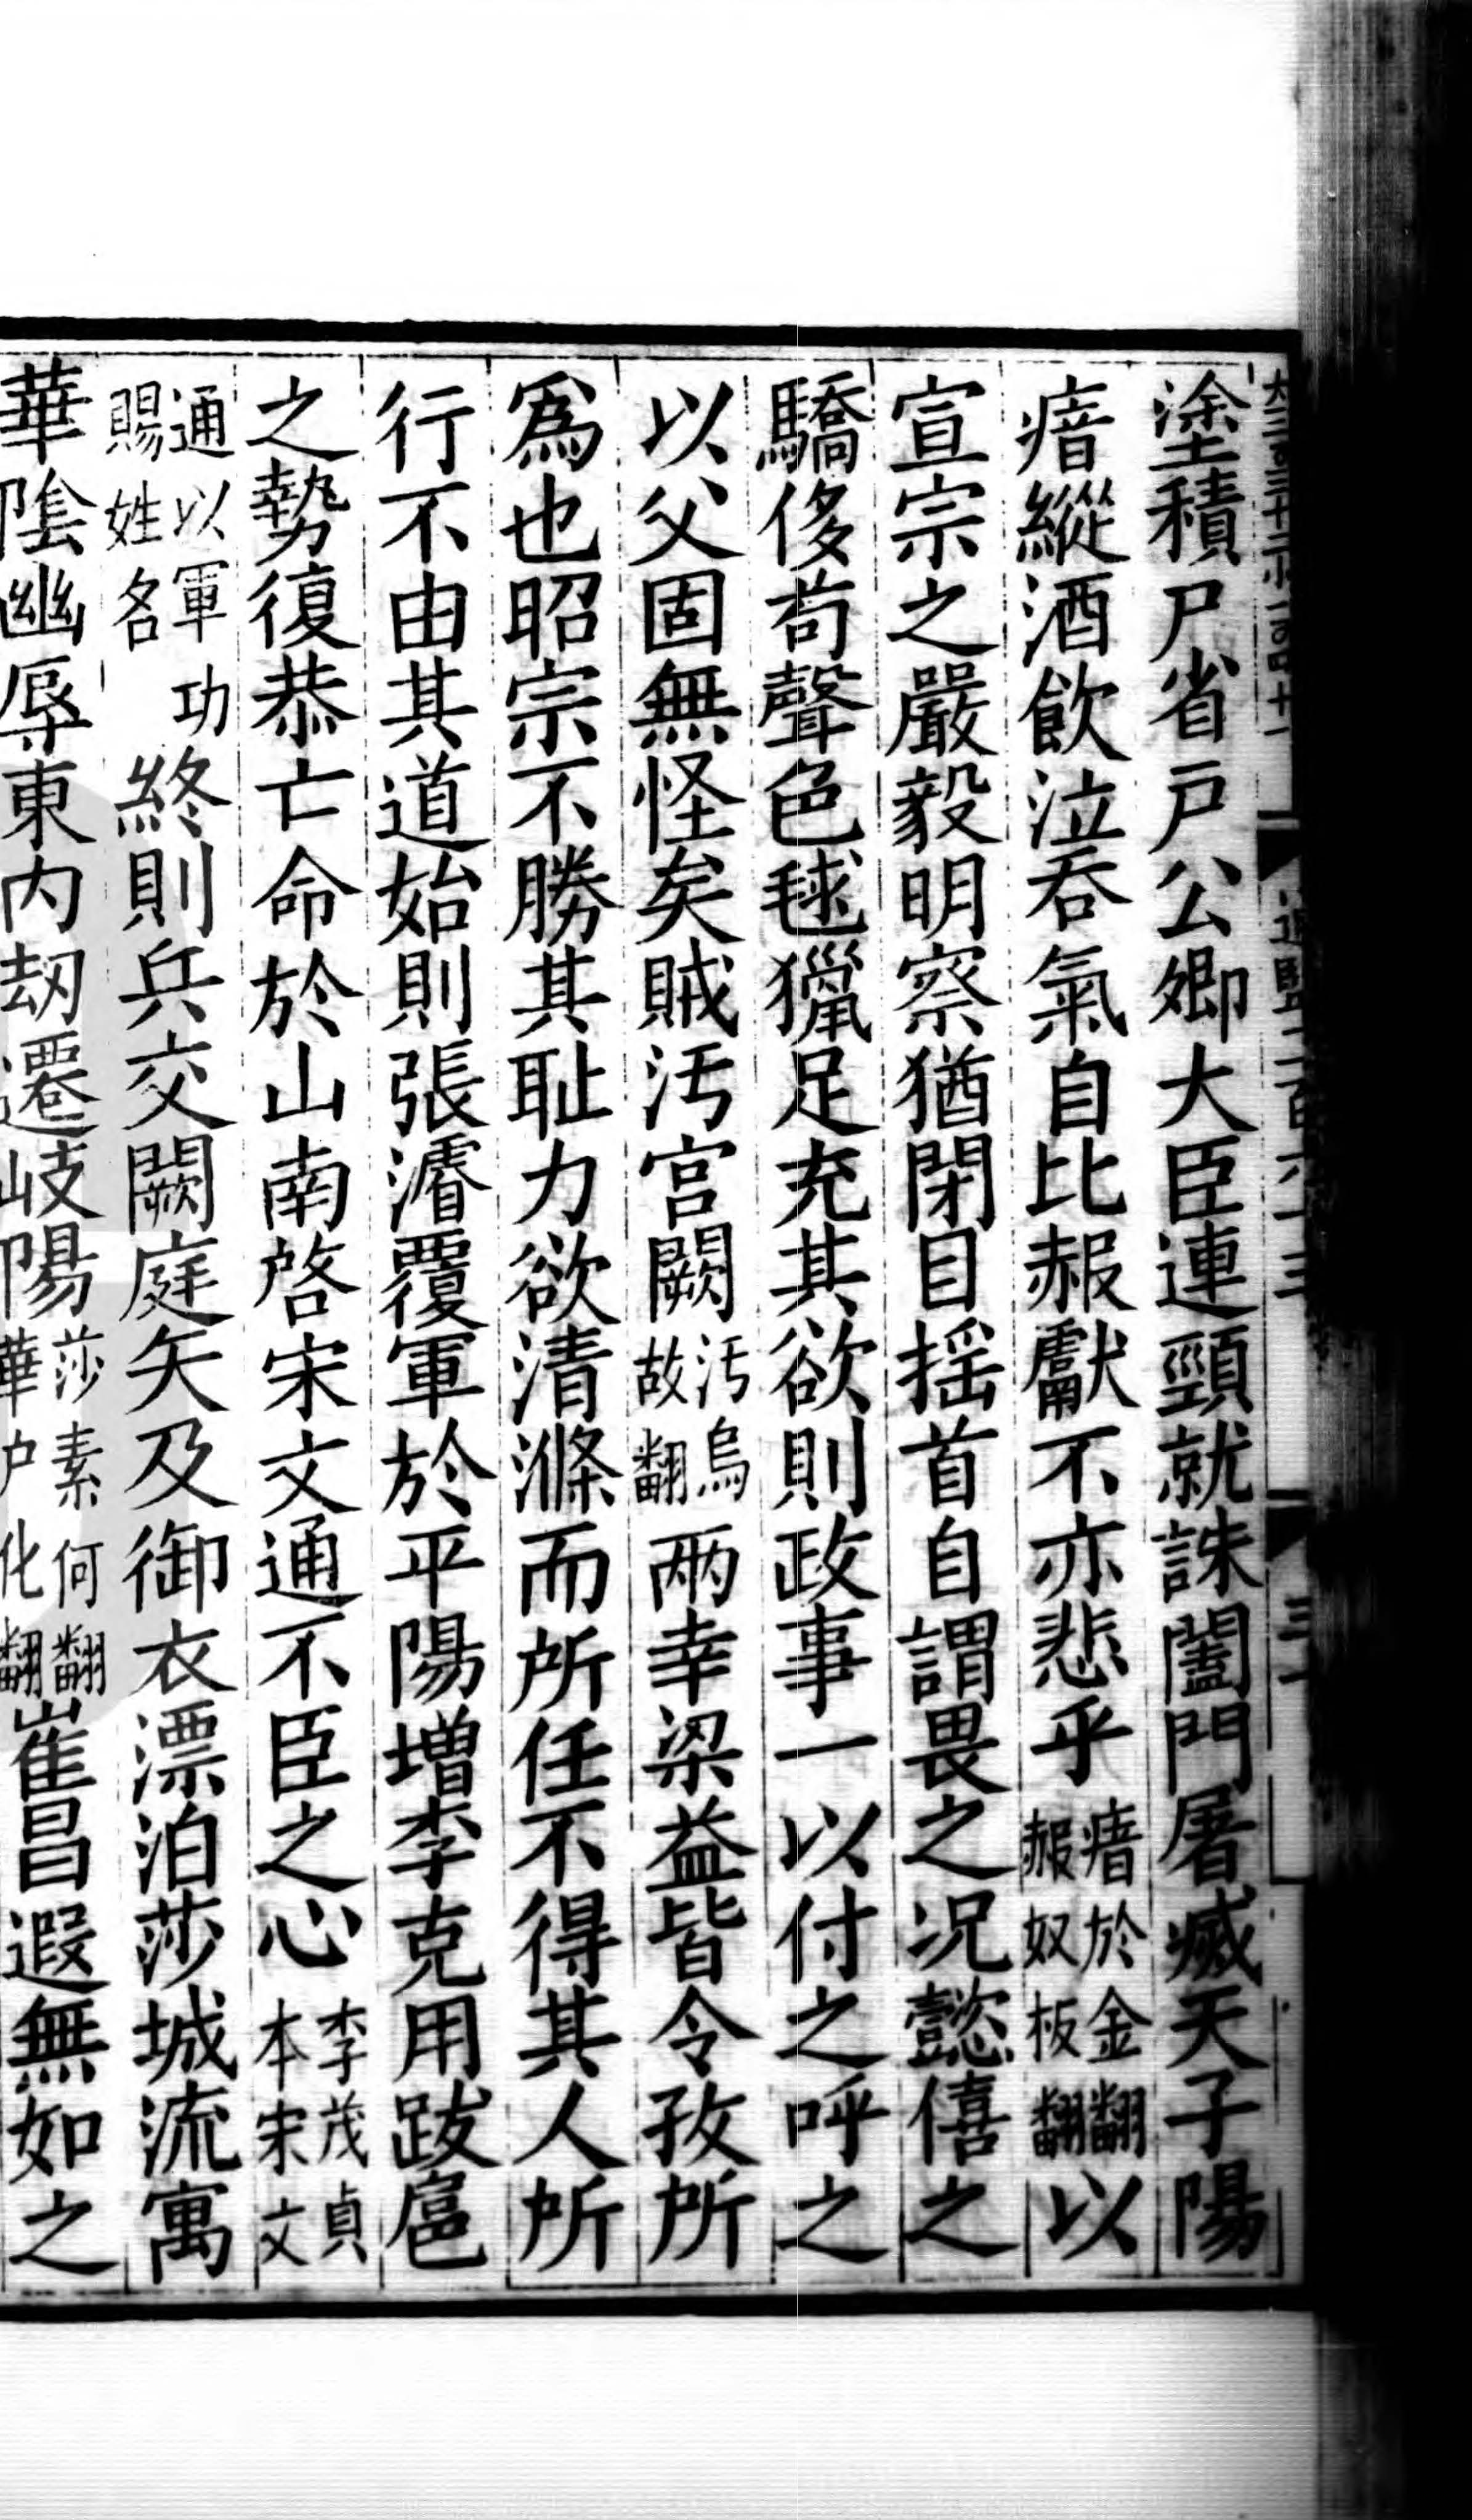 塗積尸省戸公卿大臣連頸就誅闔門屠滅天子陽
瘖縱酒飲泣吞氣自比赧獻不亦悲乎瘖於金翻赧奴板翻以
宣宗之嚴毅明察猶閉目揺首自謂畏之况懿僖之
驕侈苟聲色毬獵足充其欲則政事一以付之呼之
以父固無怪矣賊汚宮闕汚烏故翻兩幸梁益皆令孜所
爲也昭宗不勝其耻力欲清滌而所任不得其人所
行不由其道始則張濬覆軍於平陽増李克用跋扈
之勢復恭亡命於山南啓宋文通不臣之心李茂貞本宋文
通以軍功賜姓名終則兵交闕庭矢及御衣漂泊莎城流寓
華陰幽辱東内刼遷岐陽莎素何翻華户化翻崔昌遐無如之